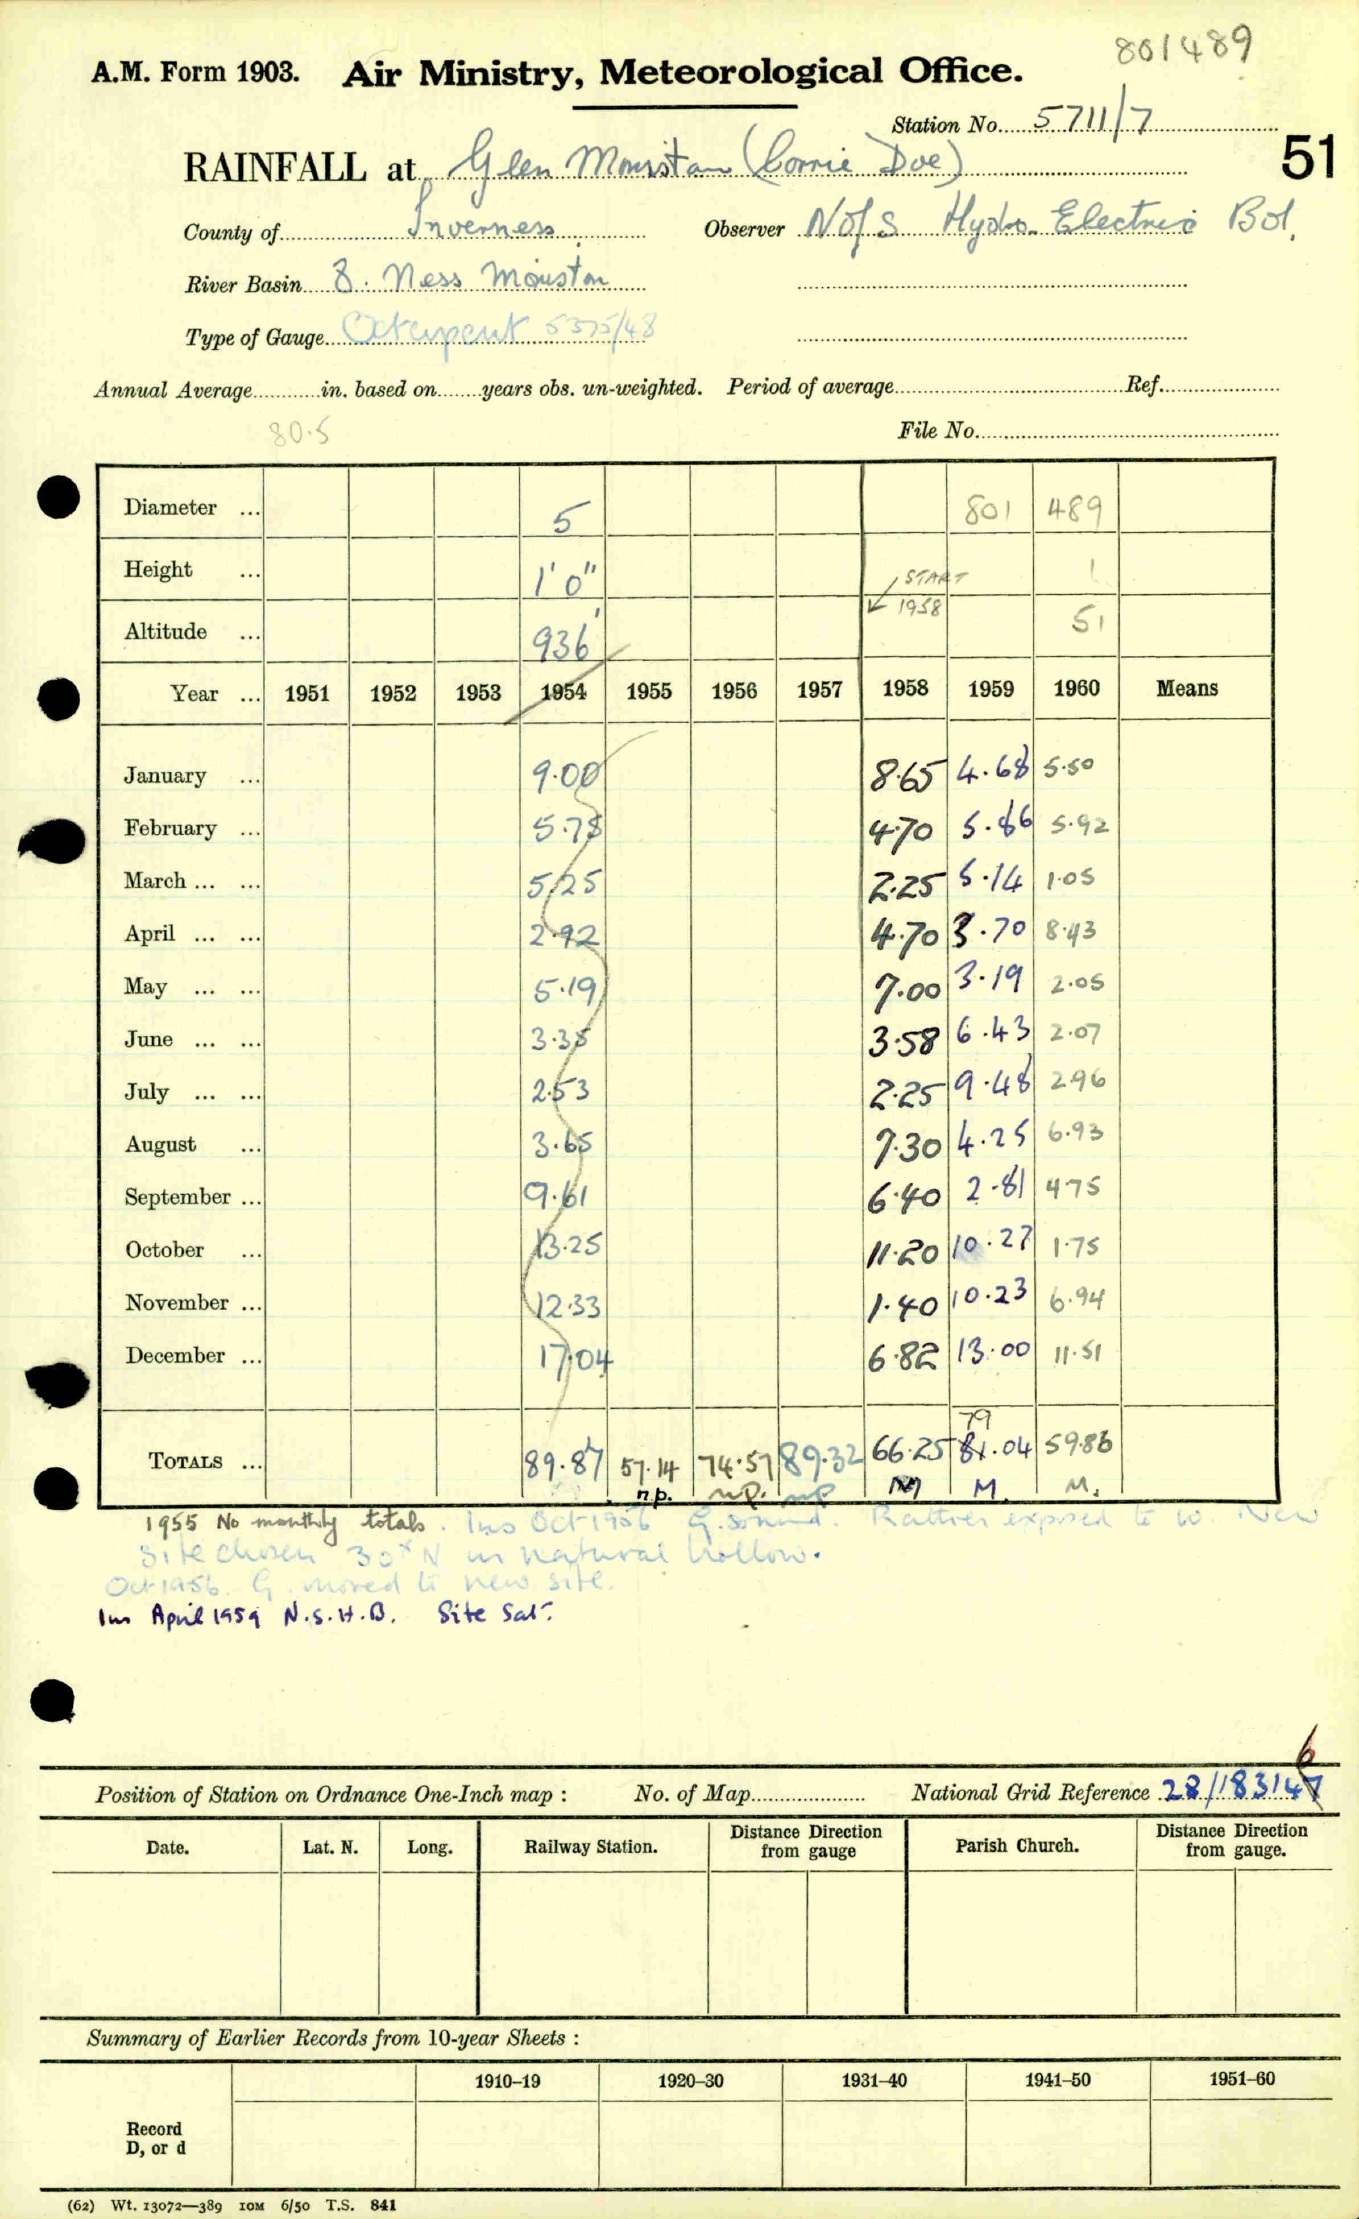 801489
A.M. Form 1903. Air Ministry, Meteorological Office.
Station No. 5711/7
51
RAINFALL at Glen Moriston (Corrie Doe)
County of Inverness Observer N of S Hydro-Electric Bd.
River Basin 8. Ness Moriston
Type of Gauge Octapent 5375/48
Annual Average in. based on years obs. un-weighted. Period of average Ref.
80.5
File No.
Diameter ... 5 801 489
Height ... 1' 0" START 1
Altitude ... 936' 1958 51
Year ... 1951 1952 1953 1954 1955 1956 1957 1958 1959 1960 Means
January ... 9.00 8.65 4.68 5.50
February ... 5.75 4.70 5.86 5.92
March ... ... 5.25 2.25 5.14 1.05
April ... ... 2.92 4.70 3.70 8.43
May ... ... 5.19 7.00 3.19 2.05
June ... ... 3.35 3.58 6.43 2.07
July ... ... 2.53 2.25 9.48 2.96
August ... 3.65 7.30 4.25 6.93
September ... 9.61 6.40 2.81 4.75
October ... 13.25 11.20 10.27 1.75
November ... 12.33 1.40 10.23 6.94
December ... 17.04 6.82 13.00 11.51
79
TOTALS ... 89.87 57.14 74.57 89.32 66.25 81.04 59.86
n.p. n.p. n.p. M M. M.
1955 No monthly totals. Ins Oct 1956 G. sound. Rather exposed to W. New
Site chosen 30x N in natural hollow.
Oct 1956. G. moved to new site.
Ins April 1959 N.S.H.B. Site Sat.
6
Position of Station on Ordnance One-Inch map : No. of Map National Grid Reference 28/183147
Date. Lat. N. Long. Railway Station. Distance Direction from gauge Parish Church. Distance Direction from gauge.
Summary of Earlier Records from 10-year Sheets :
1910–19 1920–30 1931–40 1941–50 1951–60
Record
D, or d
(62) Wt. 13072—389 10M 6/50 T.S. 841